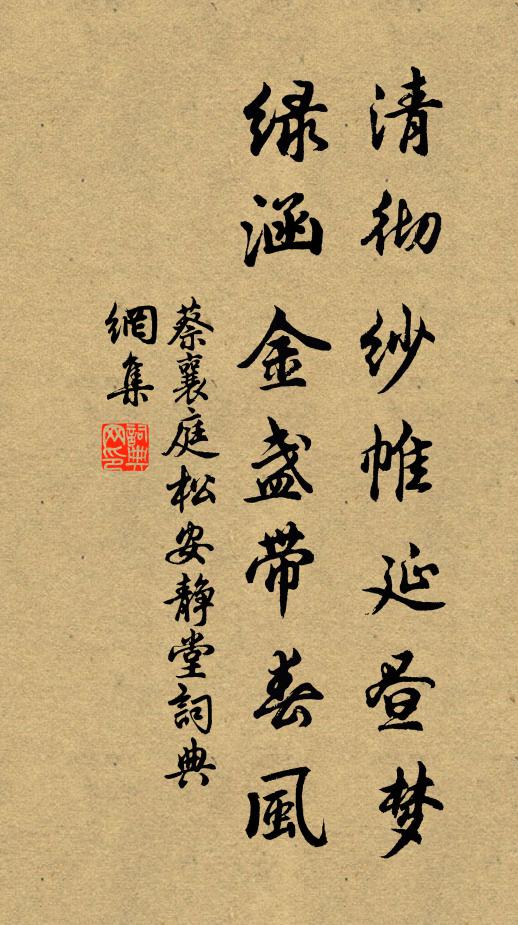 清彻纱帷延昼梦
绿涵金盏带春風
蔡襄庭松安静堂詞典
網集
詞典網印